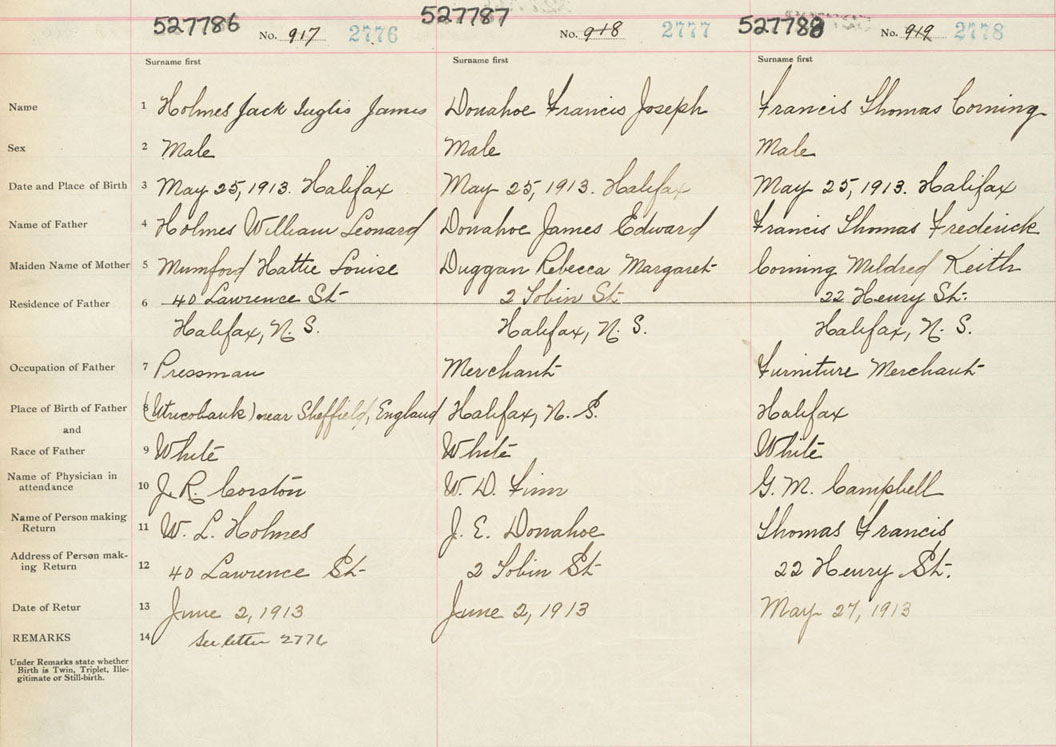 527786 527787 527788
No. 917 2776 No. 918 2777 No. 919 2778
Surname first Surname first Surname first
Name 1 Holmes Jack Inglis James Donahoe Francis Joseph Francis Thomas Corning
Sex 2 Male Male Male
Date and Place of Birth 3 May 25, 1913. Halifax May 25, 1913. Halifax May 25, 1913. Halifax
Name of Father 4 Holmes William Leonard Donahoe James Edward Francis Thomas Frederick
Maiden Name of Mother 5 Mumford Hattie Louise Duggan Rebecca Margaret Corning Mildred Keith
Residence of Father 6 40 Lawrence St 2 Tobin St 22 Henry St.
Halifax, N. S. Halifax, N. S. Halifax, N. S.
Occupation of Father 7 Pressman Merchant Furniture Merchant
Place of Birth of Father 8 near Sheffield, England Halifax, N. S. Halifax
and
Race of Father 9 White White White
Name of Physician in
attendance 10 J. R. Corston W. D. Finn G. M. Campbell
Name of Person making
Return 11 W. L. Holmes J. E. Donahoe Thomas Francis
Address of Person mak-
ing Return 12 40 Lawrence St 2 Tobin St 22 Henry St.
Date of Retur 13 June 2, 1913 June 2, 1913 May 27, 1913
REMARKS 14 See letter 2776
Under Remarks state whether
Birth is Twin, Triplet, Ille-
gitimate or Still-birth.